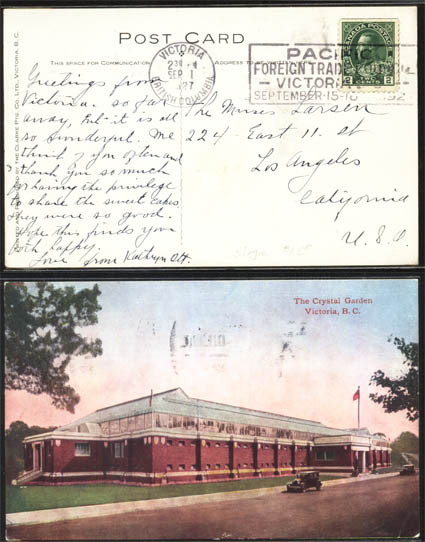 POST CARD
THIS SPACE FOR COMMUNICATION
ADDRESS TO
VICTORIA
SEP 1
BRITISH COLUMBIA
PACIFIC
FOREIGN TRADE
VICTORIA
SEPTEMBER-15-16
CANADA POSTAGE
2 2
Greetings from
Victoria. so far
away, but it is all
so wonderful. We
think of you often and
thank you so much
for having the privilege
to share the sweet cakes
they were so good.
Hope this finds you
both happy.
Love from Kathryn Ott.
The Misses Larsen
224 - East 11. st
Los Angeles
California
U. S. A.
The Crystal Garden
Victoria, B. C.